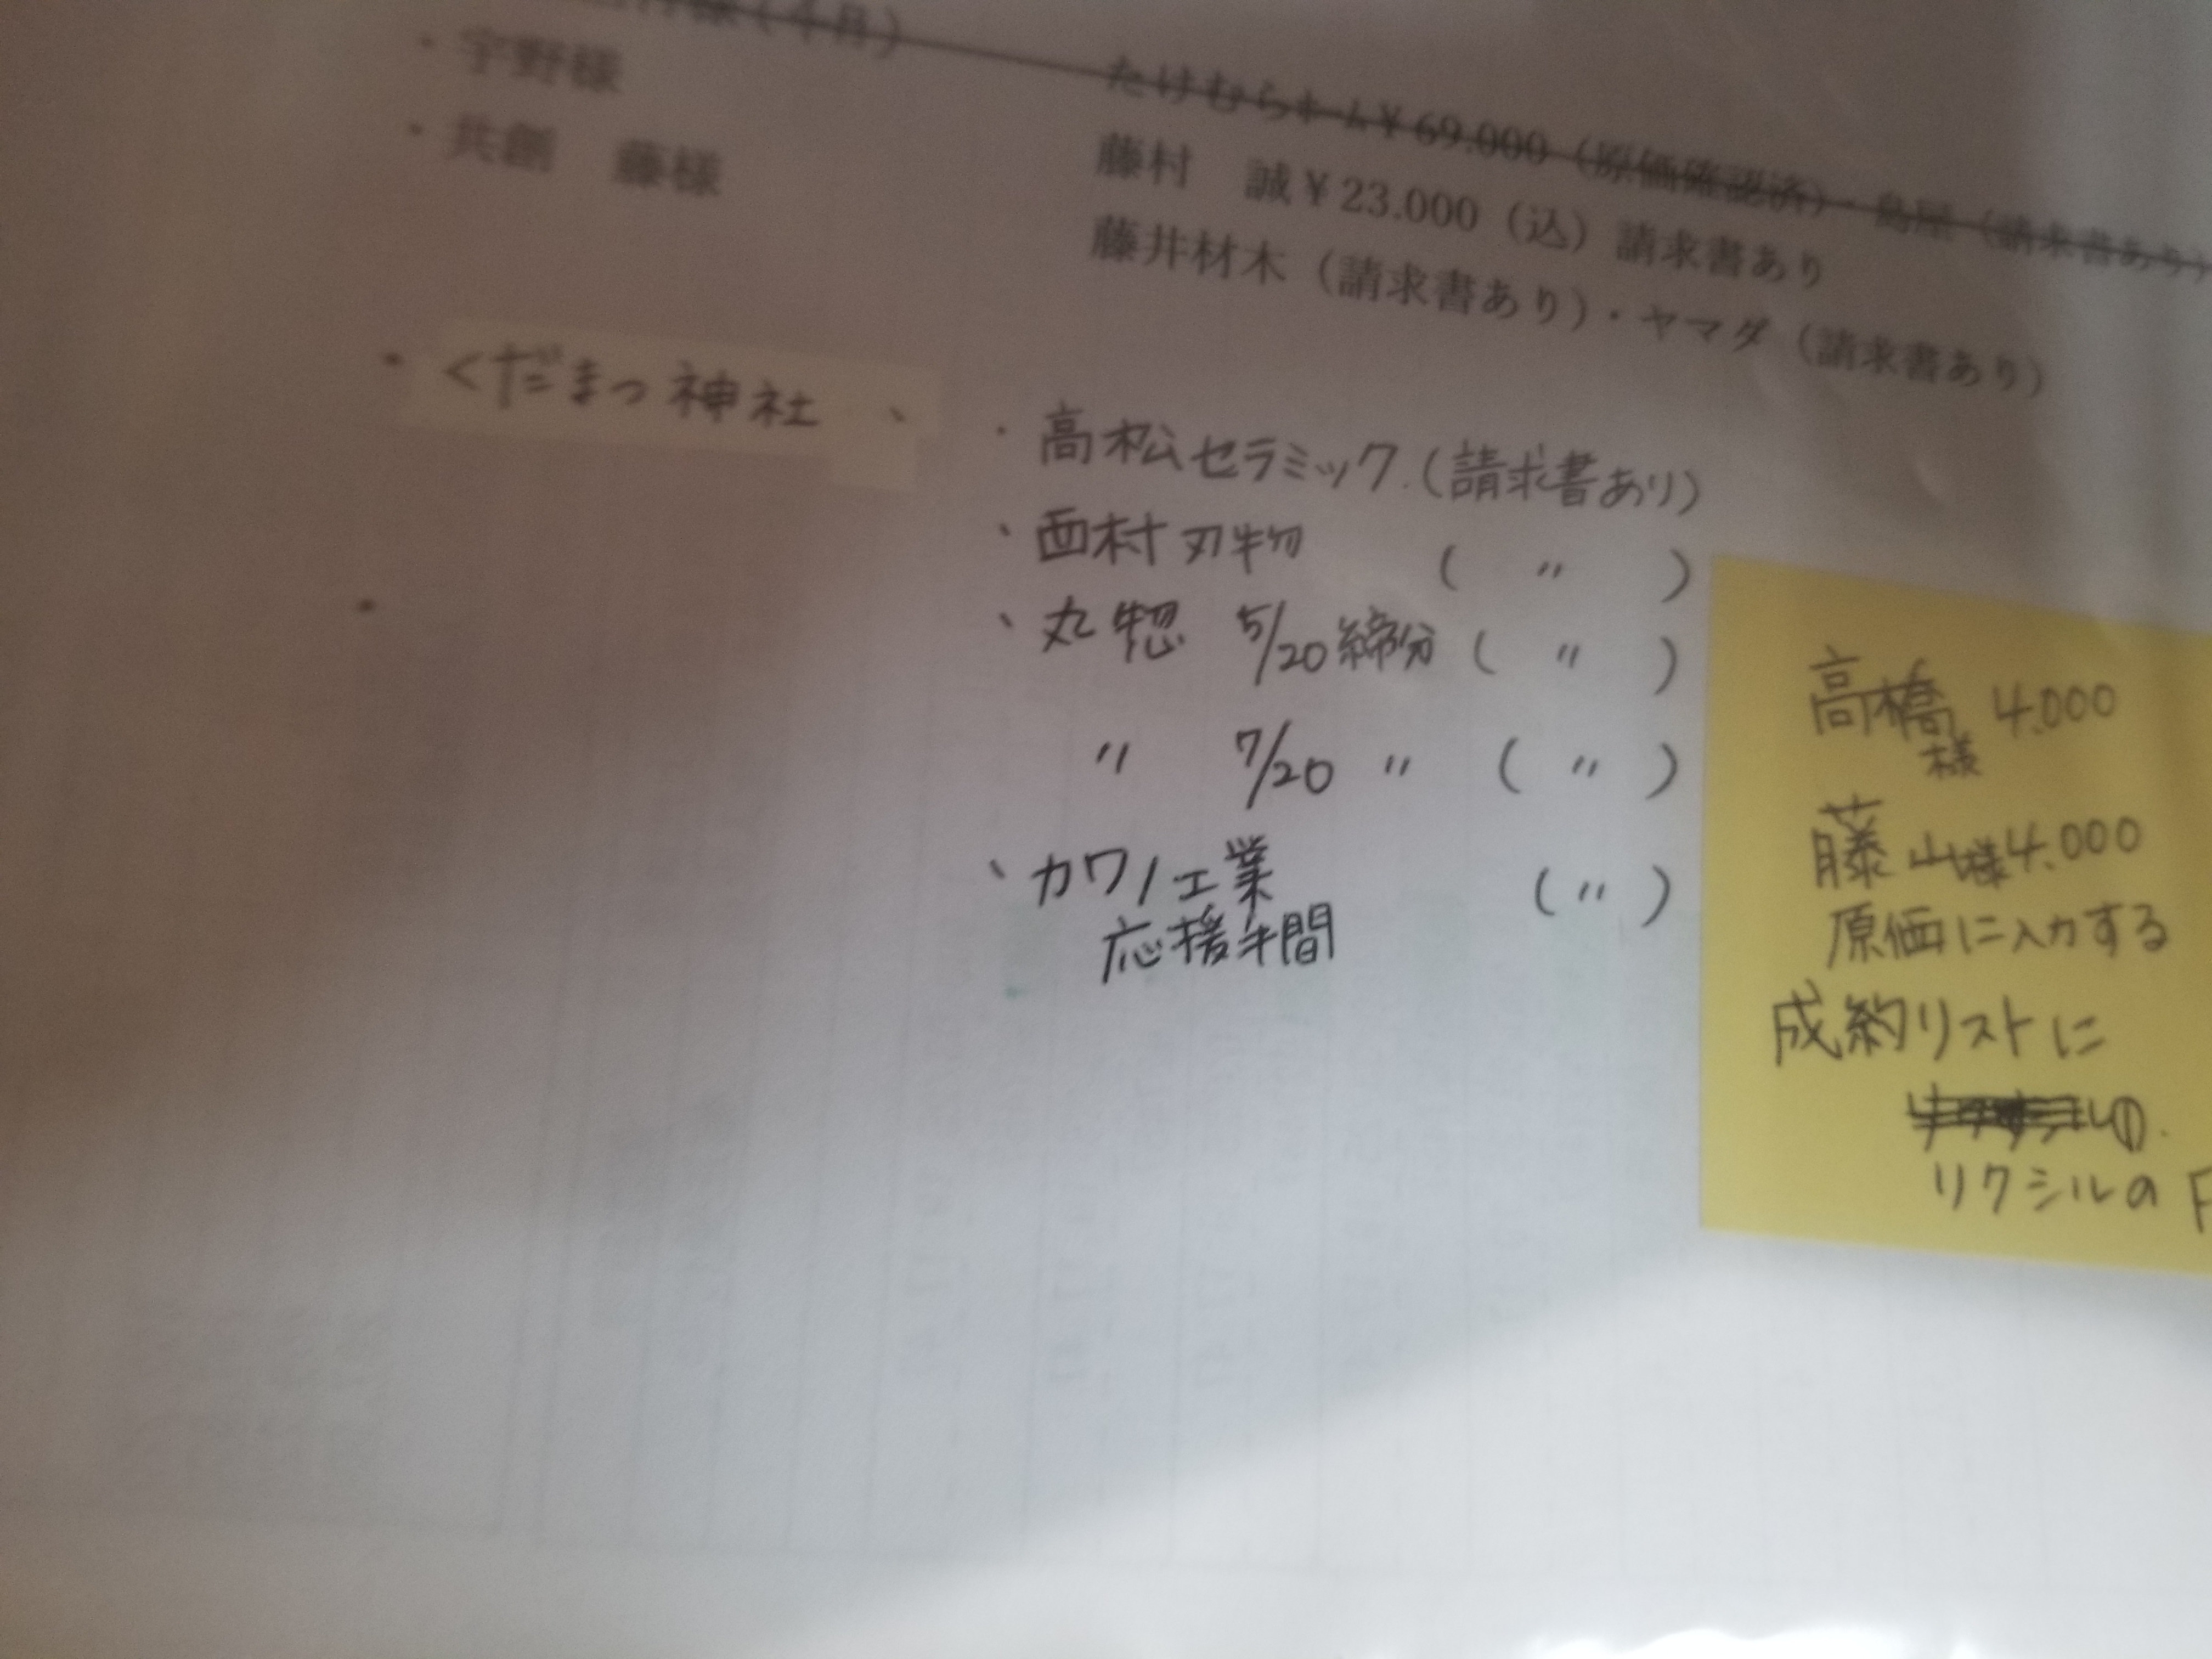 ・宇野様　たけむらホーム￥69.000（原価確認済）・鳥屋（請求書あり）
・共創　藤様　藤村　誠￥23.000（込）請求書あり
藤井材木（請求書あり）・ヤマダ（請求書あり）
・くだまつ神社、
・高松セラミック.（請求書あり）
・西村刃物（　〃　）
、丸惣　5/20締分（　〃　）
〃　7/20　〃　（　〃　）
、カワノ工業（〃）
応援手間
高橋様　4.000
藤山様4.000
原価に入力する
成約リストに
リクシルの